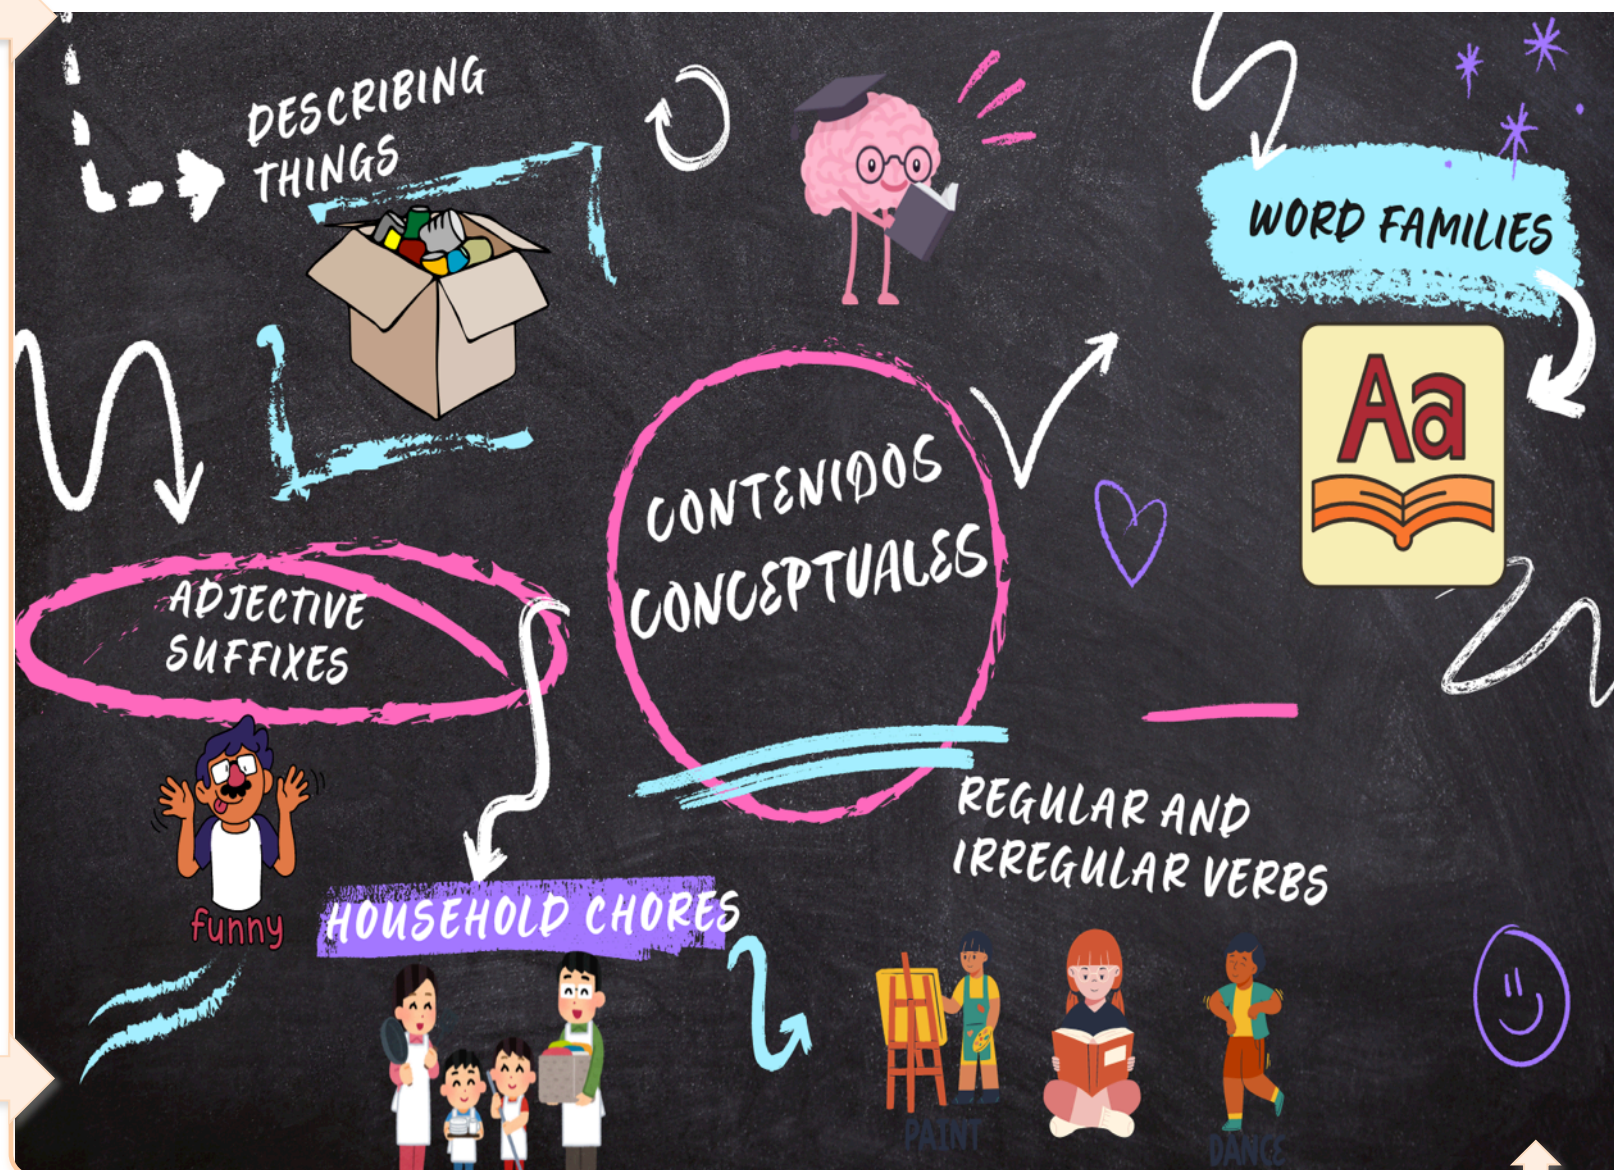 DESCRIBING
THINGS
WORD FAMILIES
Aa
CONTENIDOS
CONCEPTUALES
ADJECTIVE
SUFFIXES
funny
HOUSEHOLD CHORES
REGULAR AND
IRREGULAR VERBS
PAINT
DANCE